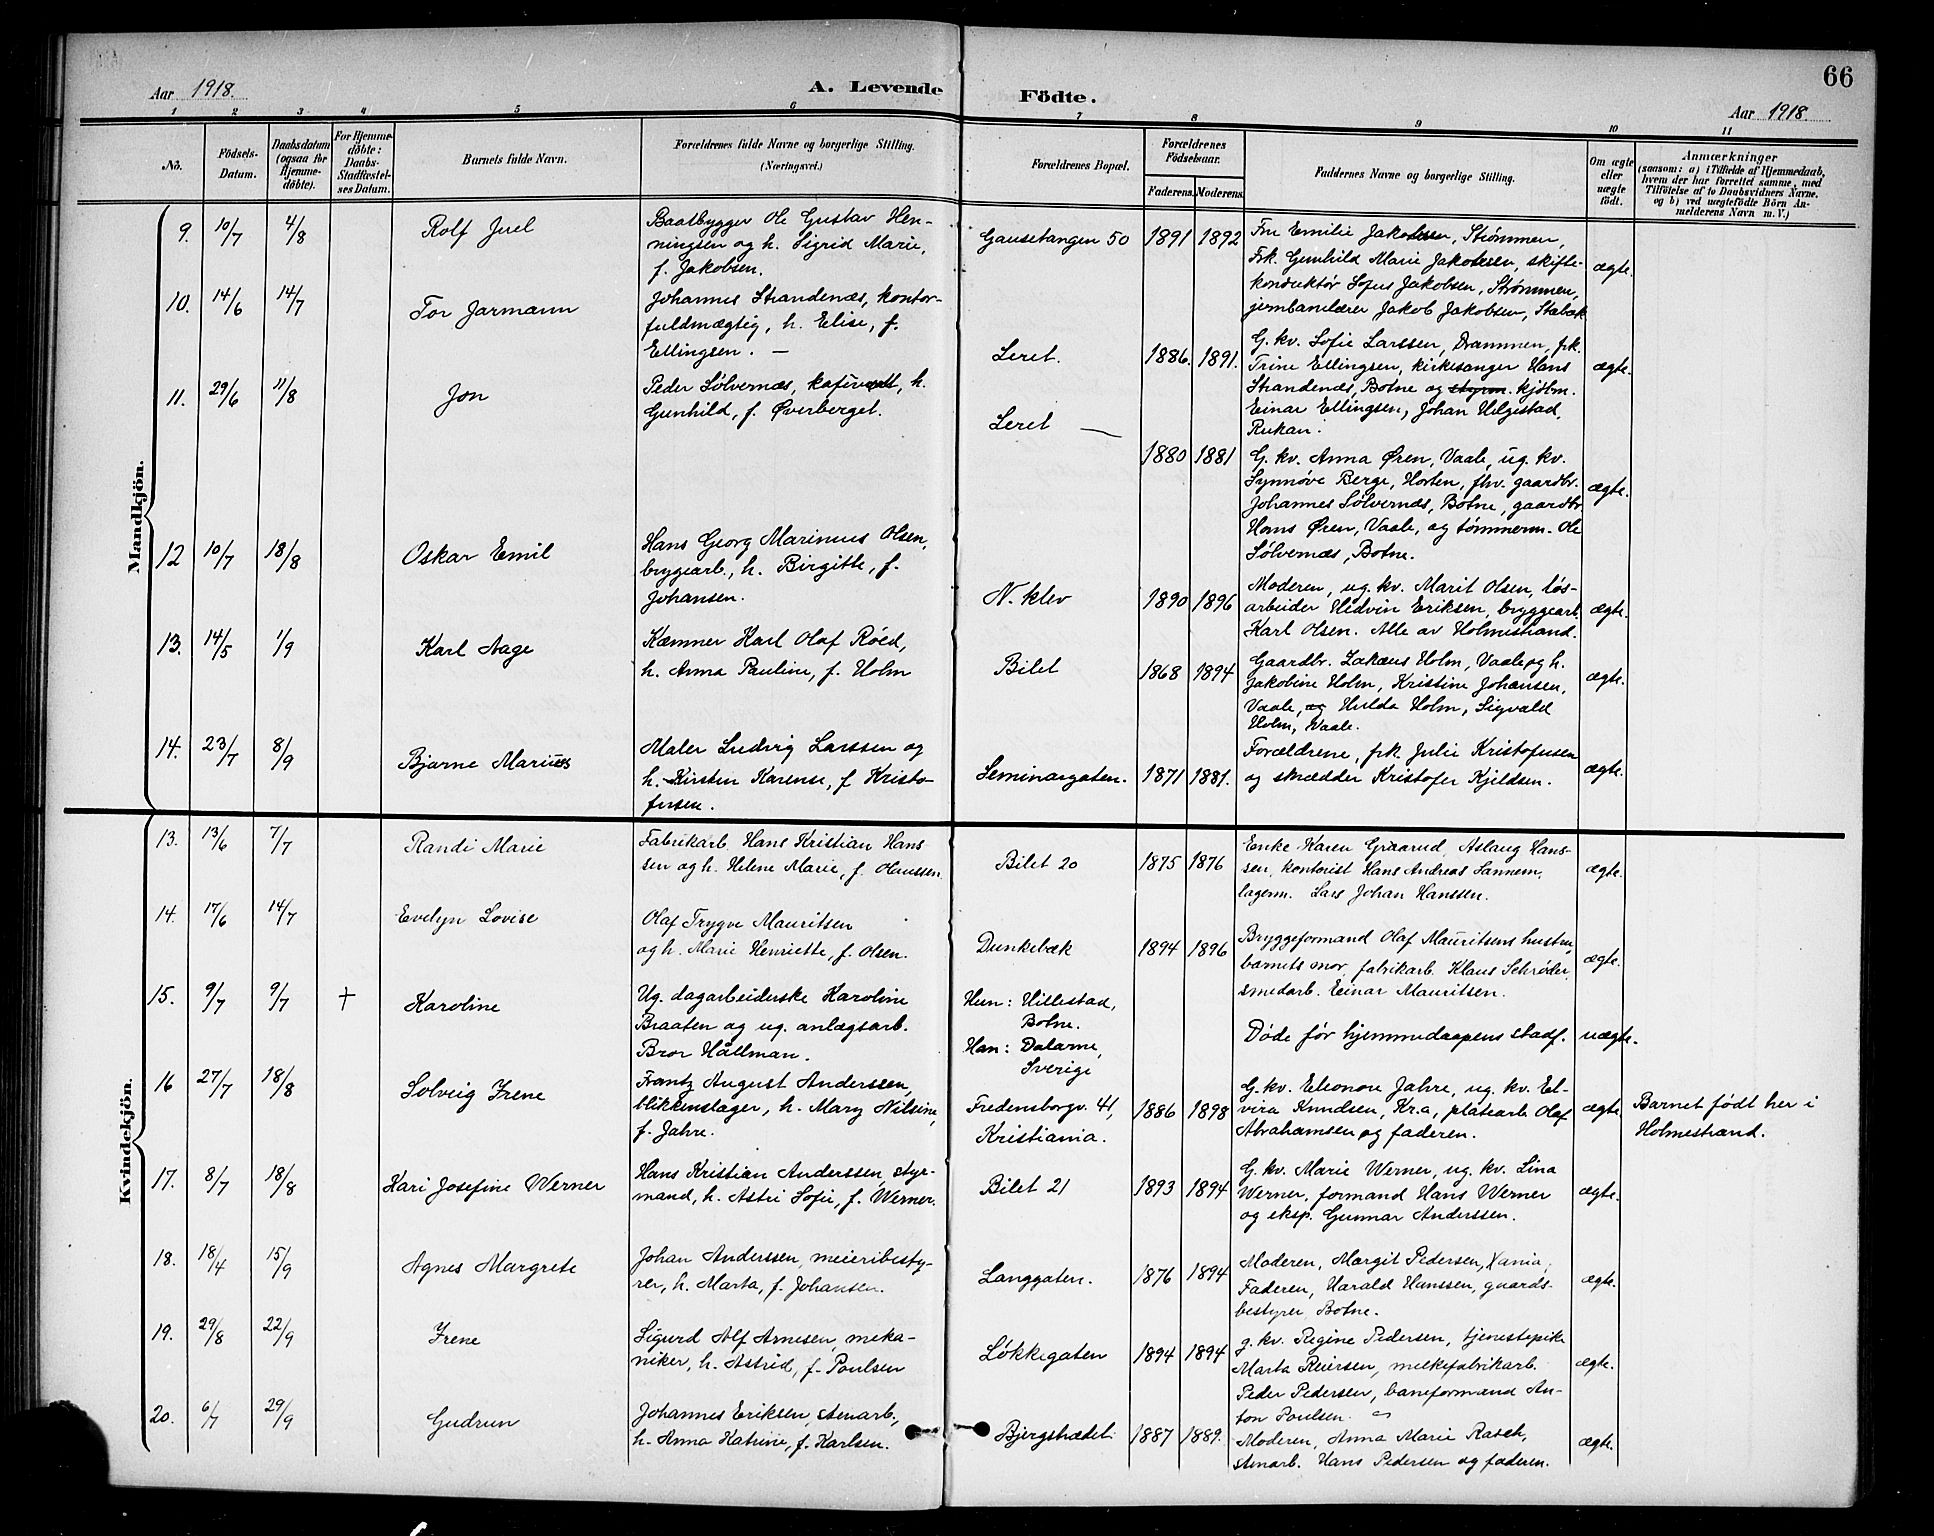 66
Aar 1918.
A. Levende Födte.
Aar 1918.
1 2 3 4 5 6 7 8 9 10 11
No.
Födsels-Datum.
Daabsdatum (ogsaa for Hjemme-döbte).
For Hjemme-döbte: Daabs-Stadfæstel-ses Datum.
Barnets fulde Navn.
Forældrenes fulde Navne og borgerlige Stilling.
(Næringsvei.)
Forældrenes Bopæl.
Forældrenes Födselsaar.
Faderens. Moderens.
Faddernes Navne og borgerlige Stilling.
Om ægte eller uægte födt.
Anmærkninger
(saasom: a) i Tilfælde af Hjemmedaab,
hvem der har forrettet samme, med
Tilföielse af to Daabsvidners Navne.
og b) ved uægtefödte Börn An-
melderens Navn m. V.)
Mandkjön.
9. 10/7 4/8 Rolf Juel
Baatbygger Ole Gustav Hen-
ningsen og h. Sigrid Marie,
f. Jakobsen.
Gausetangen 50 1891 1892
Fru Emilie Jakobsen, Strømmen,
Frk. Gunhild Marie Jakobsen, skifte-
konduktør Sofus Jakobsen, Strømmen,
jernbanelærer Jakob Jakobsen, Stabæk
ægte.
10. 14/6 14/7 Tor Jarmann
Johannes Strandenæs, kontor-
fuldmægtig, h. Elise, f.
Ellingsen. —
Leret. 1886. 1891.
G. kv. Sofie Larssen, Drammen, frk.
Trine Ellingsen, kirkesanger Hans
Strandenæs, Botne og styrm. kjøbm.
Einar Ellingsen, Johan Helgestad,
Rukan.
ægte.
11. 29/6 11/8 Jon
Peder Sølvernæs, kafévert, h.
Gunhild, f. Øverberget.
Leret — 1880 1881
G. kv. Anna Øren, Vaale, ug. kv.
Synnøve Berge, Horten, fhv. gaardbr.
Johannes Sølvernæs, Botne, gaardbr
Hans Øren, Vaale, og tømmerm. Ole
Sølvernæs, Botne.
ægte.
12 10/7 18/8 Oskar Emil
Hans Georg Marinius Olsen,
bryggearb., h. Birgitte, f.
Johansen.
N. klev 1890 1896
Moderen, ug. kv. Marit Olsen, løs-
arbeider Hedvin Eriksen, bryggearb.
Karl Olsen. Alle av Holmestrand.
ægte.
13. 14/5 1/9 Karl Aage
Kæmner Karl Olaf Röed,
h. Anna Pauline, f. Holm
Bilet 1868 1894
Gaardbr. Zakæus Holm, Vaale, og h.
Jakobine Holm, Kristine Johansen,
Vaale, og Hulda Holm, Sigvald
Holm, Vaale.
ægte.
14. 23/7 8/9 Bjarne Marius
Maler Ludvig Larssen og
h. Kirsten Karense, f Kristo-
fersen.
Seminargaten. 1871 1881.
Forældrene, frk. Julie Kristofersen
og skrædder Kristofer Kjeldsen.
ægte.
Kvindekjön.
13. 13/6 7/7 Randi Marie
Fabrikarb. Hans Kristian Hans
sen og h. Helene Marie, f. Clausen.
Bilet 20 1875 1876
Enke Karen Graarud, Aslaug Hans-
sen, kontorist Hans Andreas Sannem,
lagerm. Lars Johan Hanssen.
ægte.
14. 17/6 14/7 Evelyn Lovise
Olaf Trygve Mauritsen
og h. Marie Henriette, f. Olsen.
Dunkebæk 1894 1896
Bryggeformand Olaf Mauritsens hustru,
barnets mor, fabrikarb. Klaus Schrøder,
smedarb. Einar Mauritsen.
ægte.
15. 9/7 9/7 † Karoline
Ug. dagarbeiderske Karoline
Braaten og ug. anlægsarb.
Bror Hållman.
Hun: Hillestad,
Botne.
Han: Dalarne,
Sverige
Døde før hjemmedaapens stadf.
uægte.
16 27/7 18/8 Solveig Irene
Frantz August Anderssen,
blikkenslager, h. Mary Nilsine,
f. Jahre.
Fredensborgv. 41,
Kristiania. 1886 1898
G. kv. Eleonore Jahre, ug. kv. El-
vira Knudsen, Kr.a, platearb Olaf
Abrahamsen og faderen.
ægte
Barnet født her i
Holmestrand.
17. 8/7 18/8 Kari Josefine Werner
Hans Kristian Anderssen, styr-
mand, h. Astri Sofie, f. Werner.
Bilet 21 1893 1894
G. kv. Marie Werner, ug. kv. Lina
Werner, formand Hans Werner
og eksp. Gunnar Anderssen.
ægte.
18. 18/4 15/9 Agnes Margrete
Johan Anderssen, meieribesty-
rer, h. Marta, f. Johansen.
Langgaten. 1876 1894
Moderen, Margit Pedersen, Xania,
Faderen, Harald Hanssen, gaards-
bestyrer Botne.
ægte.
19. 29/8 22/9 Irene
Sigurd Alf Arnesen, meka-
niker, h. Astrid, f. Poulsen
Løkkegaten 1894 1894
g. kv. Regine Pedersen, tjenestepike
Marta Reiersen, melkefabrikarb.
Peder Pedersen, baneformand An-
ton Poulsen.
ægte.
20. 6/7 29/9 Gudrun
Johannes Eriksen, stenarb.,
h. Anna Katrine, f. Karlsen.
Bjergstrædet 1887 1889.
Moderen, Anna Marie Rasch,
stenarb. Hans Pedersen og faderen.
ægte.